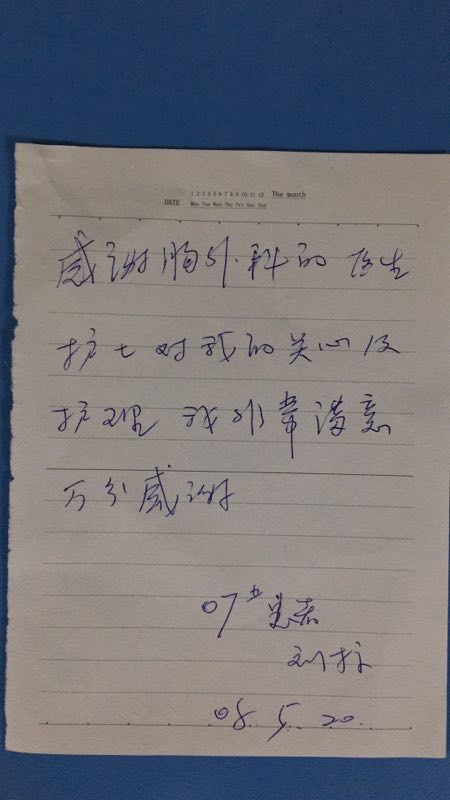 1 2 3 4 5 6 7 8 9 10 11 12 The month
DATE Mon Tue Wed Thu Fri Sat Sun
感谢胸外科的医生
护士对我的关心及
护理 我非常满意
万分感谢
07# 患者
刘
08. 5. 20.